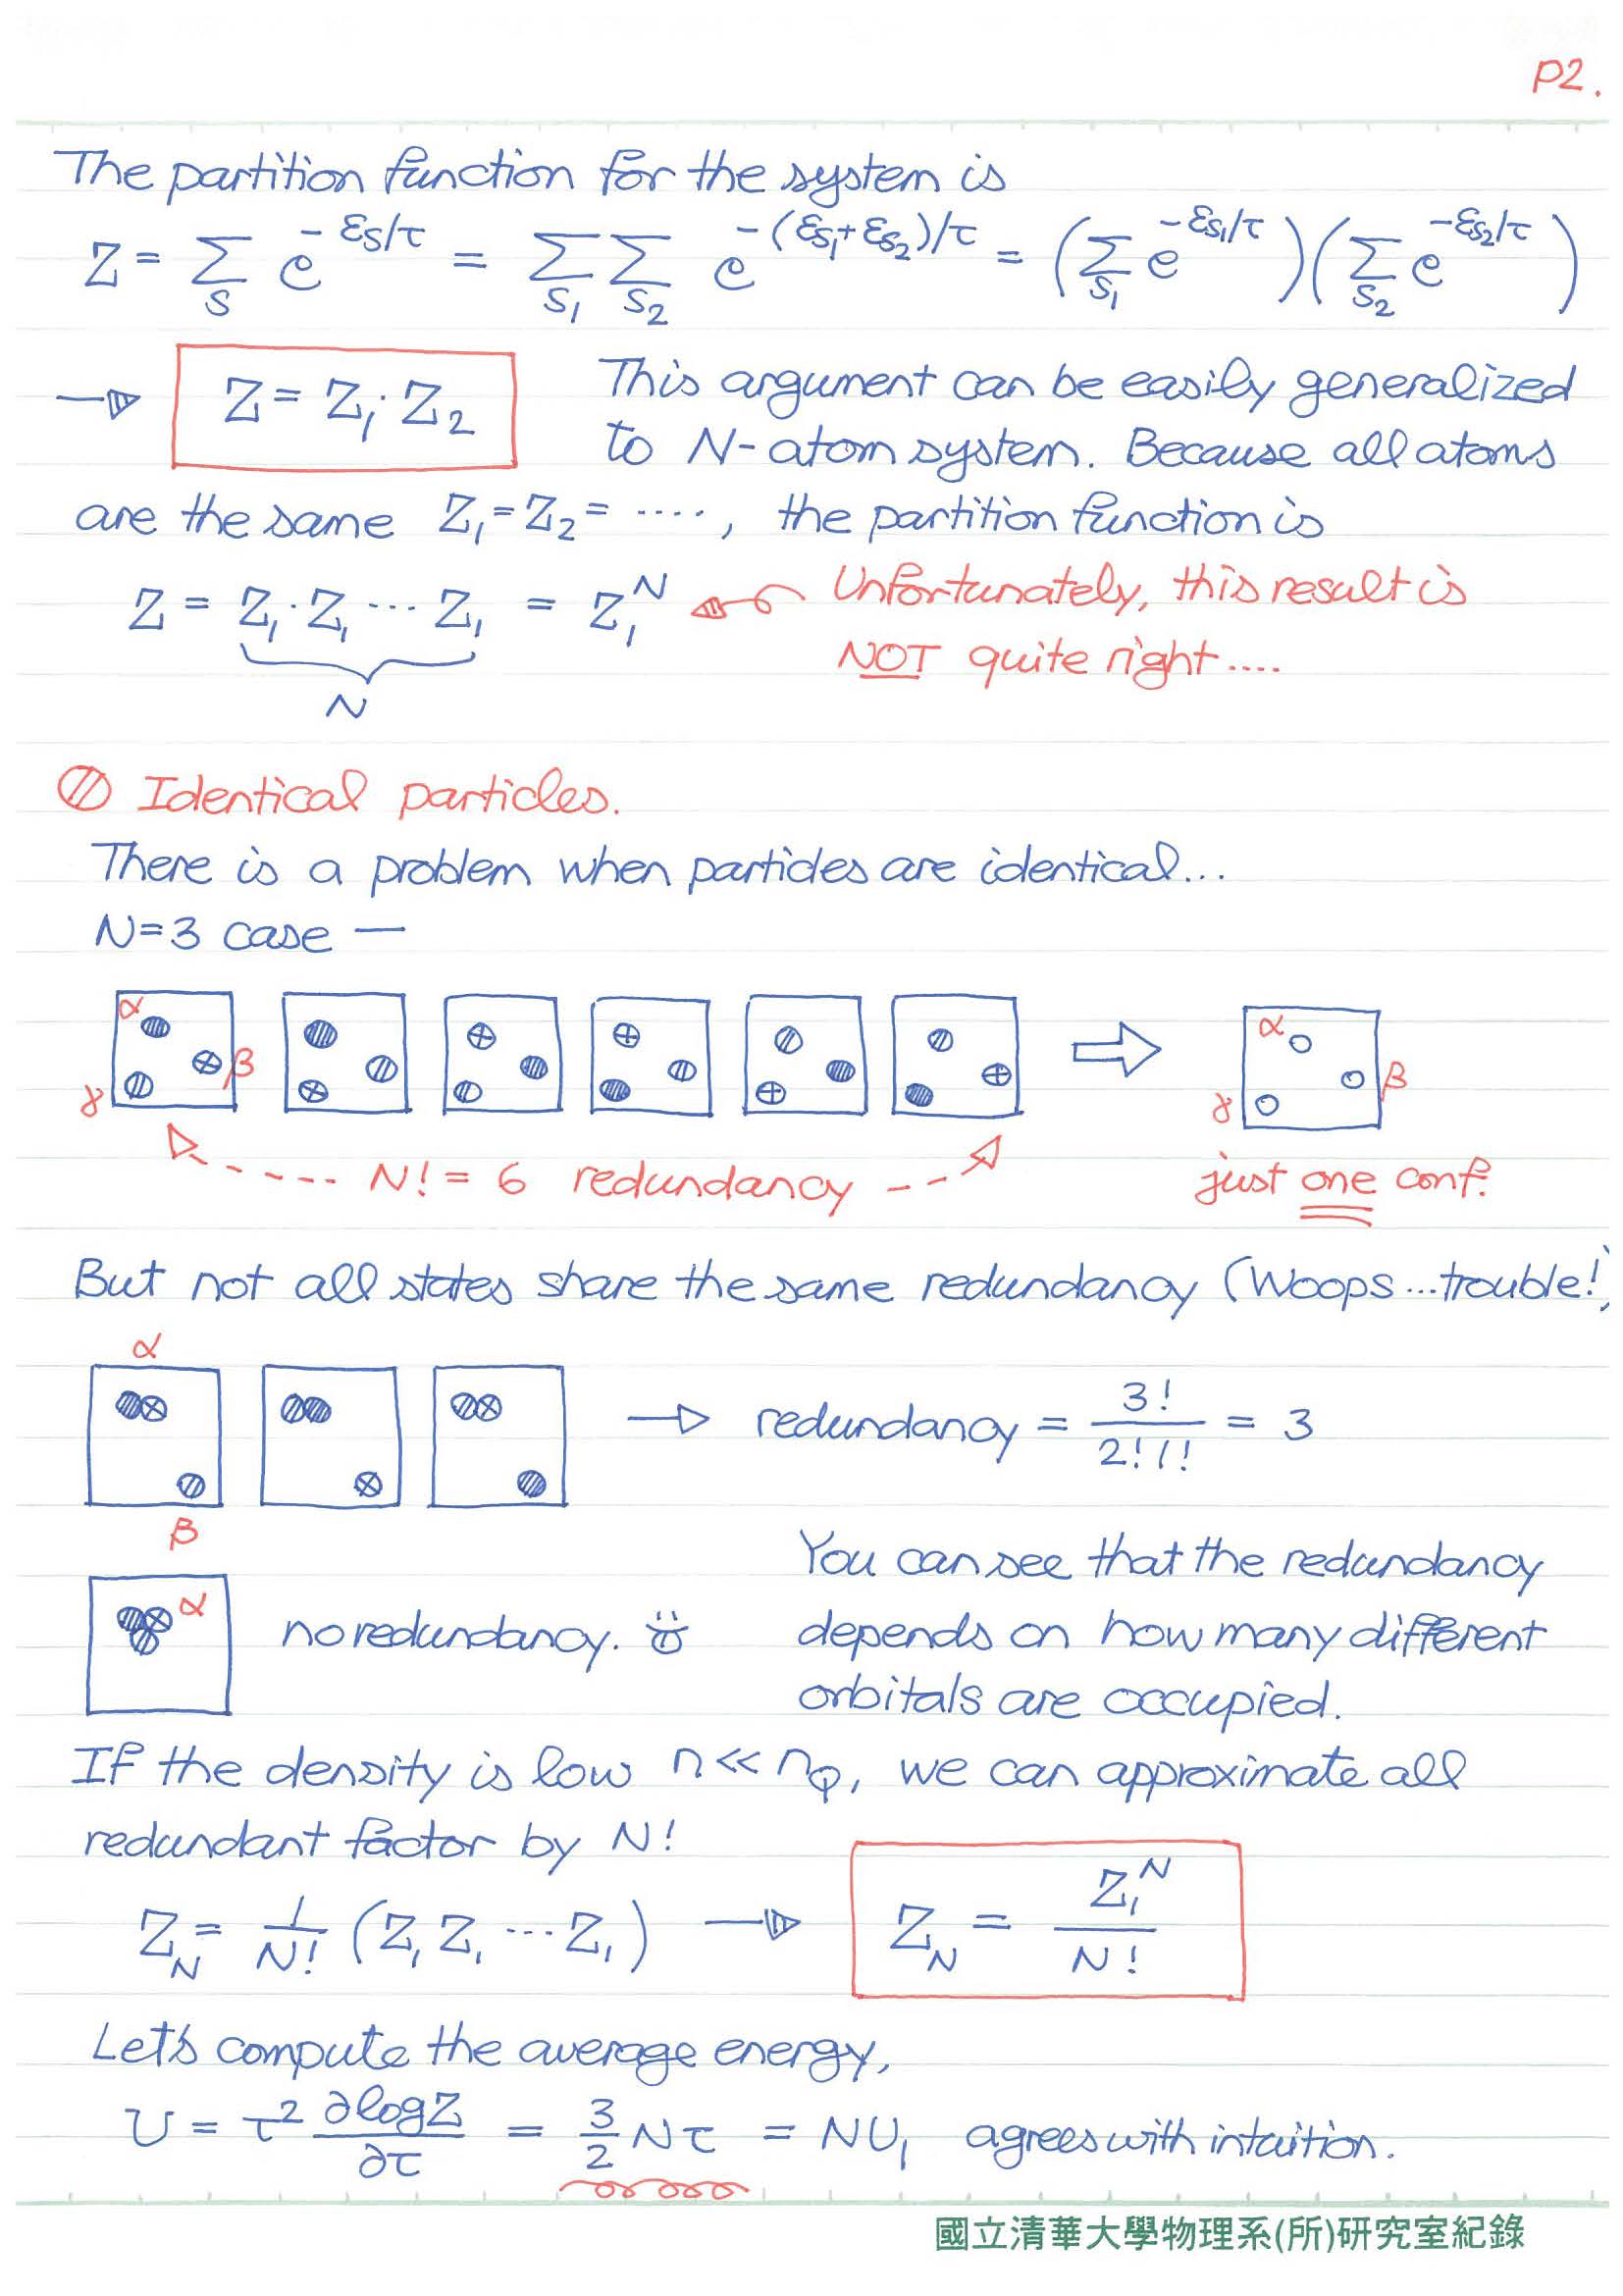 P2.
The partition function for the system is
Z = Σ_S e^{-ε_S/τ} = Σ_{S_1} Σ_{S_2} e^{-(ε_{S_1}+ε_{S_2})/τ} = (Σ_{S_1} e^{-ε_{S_1}/τ})(Σ_{S_2} e^{-ε_{S_2}/τ})
→ Z = Z_1 · Z_2 This argument can be easily generalized
to N-atom system. Because all atoms
are the same Z_1 = Z_2 = ····, the partition function is
Z = Z_1 · Z_1 ··· Z_1 = Z_1^N Unfortunately, this result is
NOT quite right....
N
Identical particles.
There is a problem when particles are identical...
N=3 case —
α β γ ⇒ α β γ
N! = 6 redundancy just one conf.
But not all states share the same redundancy (Woops...trouble!)
α
→ redundancy = 3!/2!1! = 3
β
You can see that the redundancy
α no redundancy. depends on how many different
orbitals are occupied.
If the density is low n << n_Q, we can approximate all
redundant factor by N!
Z_N = 1/N! (Z_1 Z_1 ··· Z_1) → Z_N = Z_1^N/N!
Let's compute the average energy,
U = τ² ∂logZ/∂τ = 3/2 Nτ = NU_1 agrees with intuition.
國立清華大學物理系(所)研究室紀錄